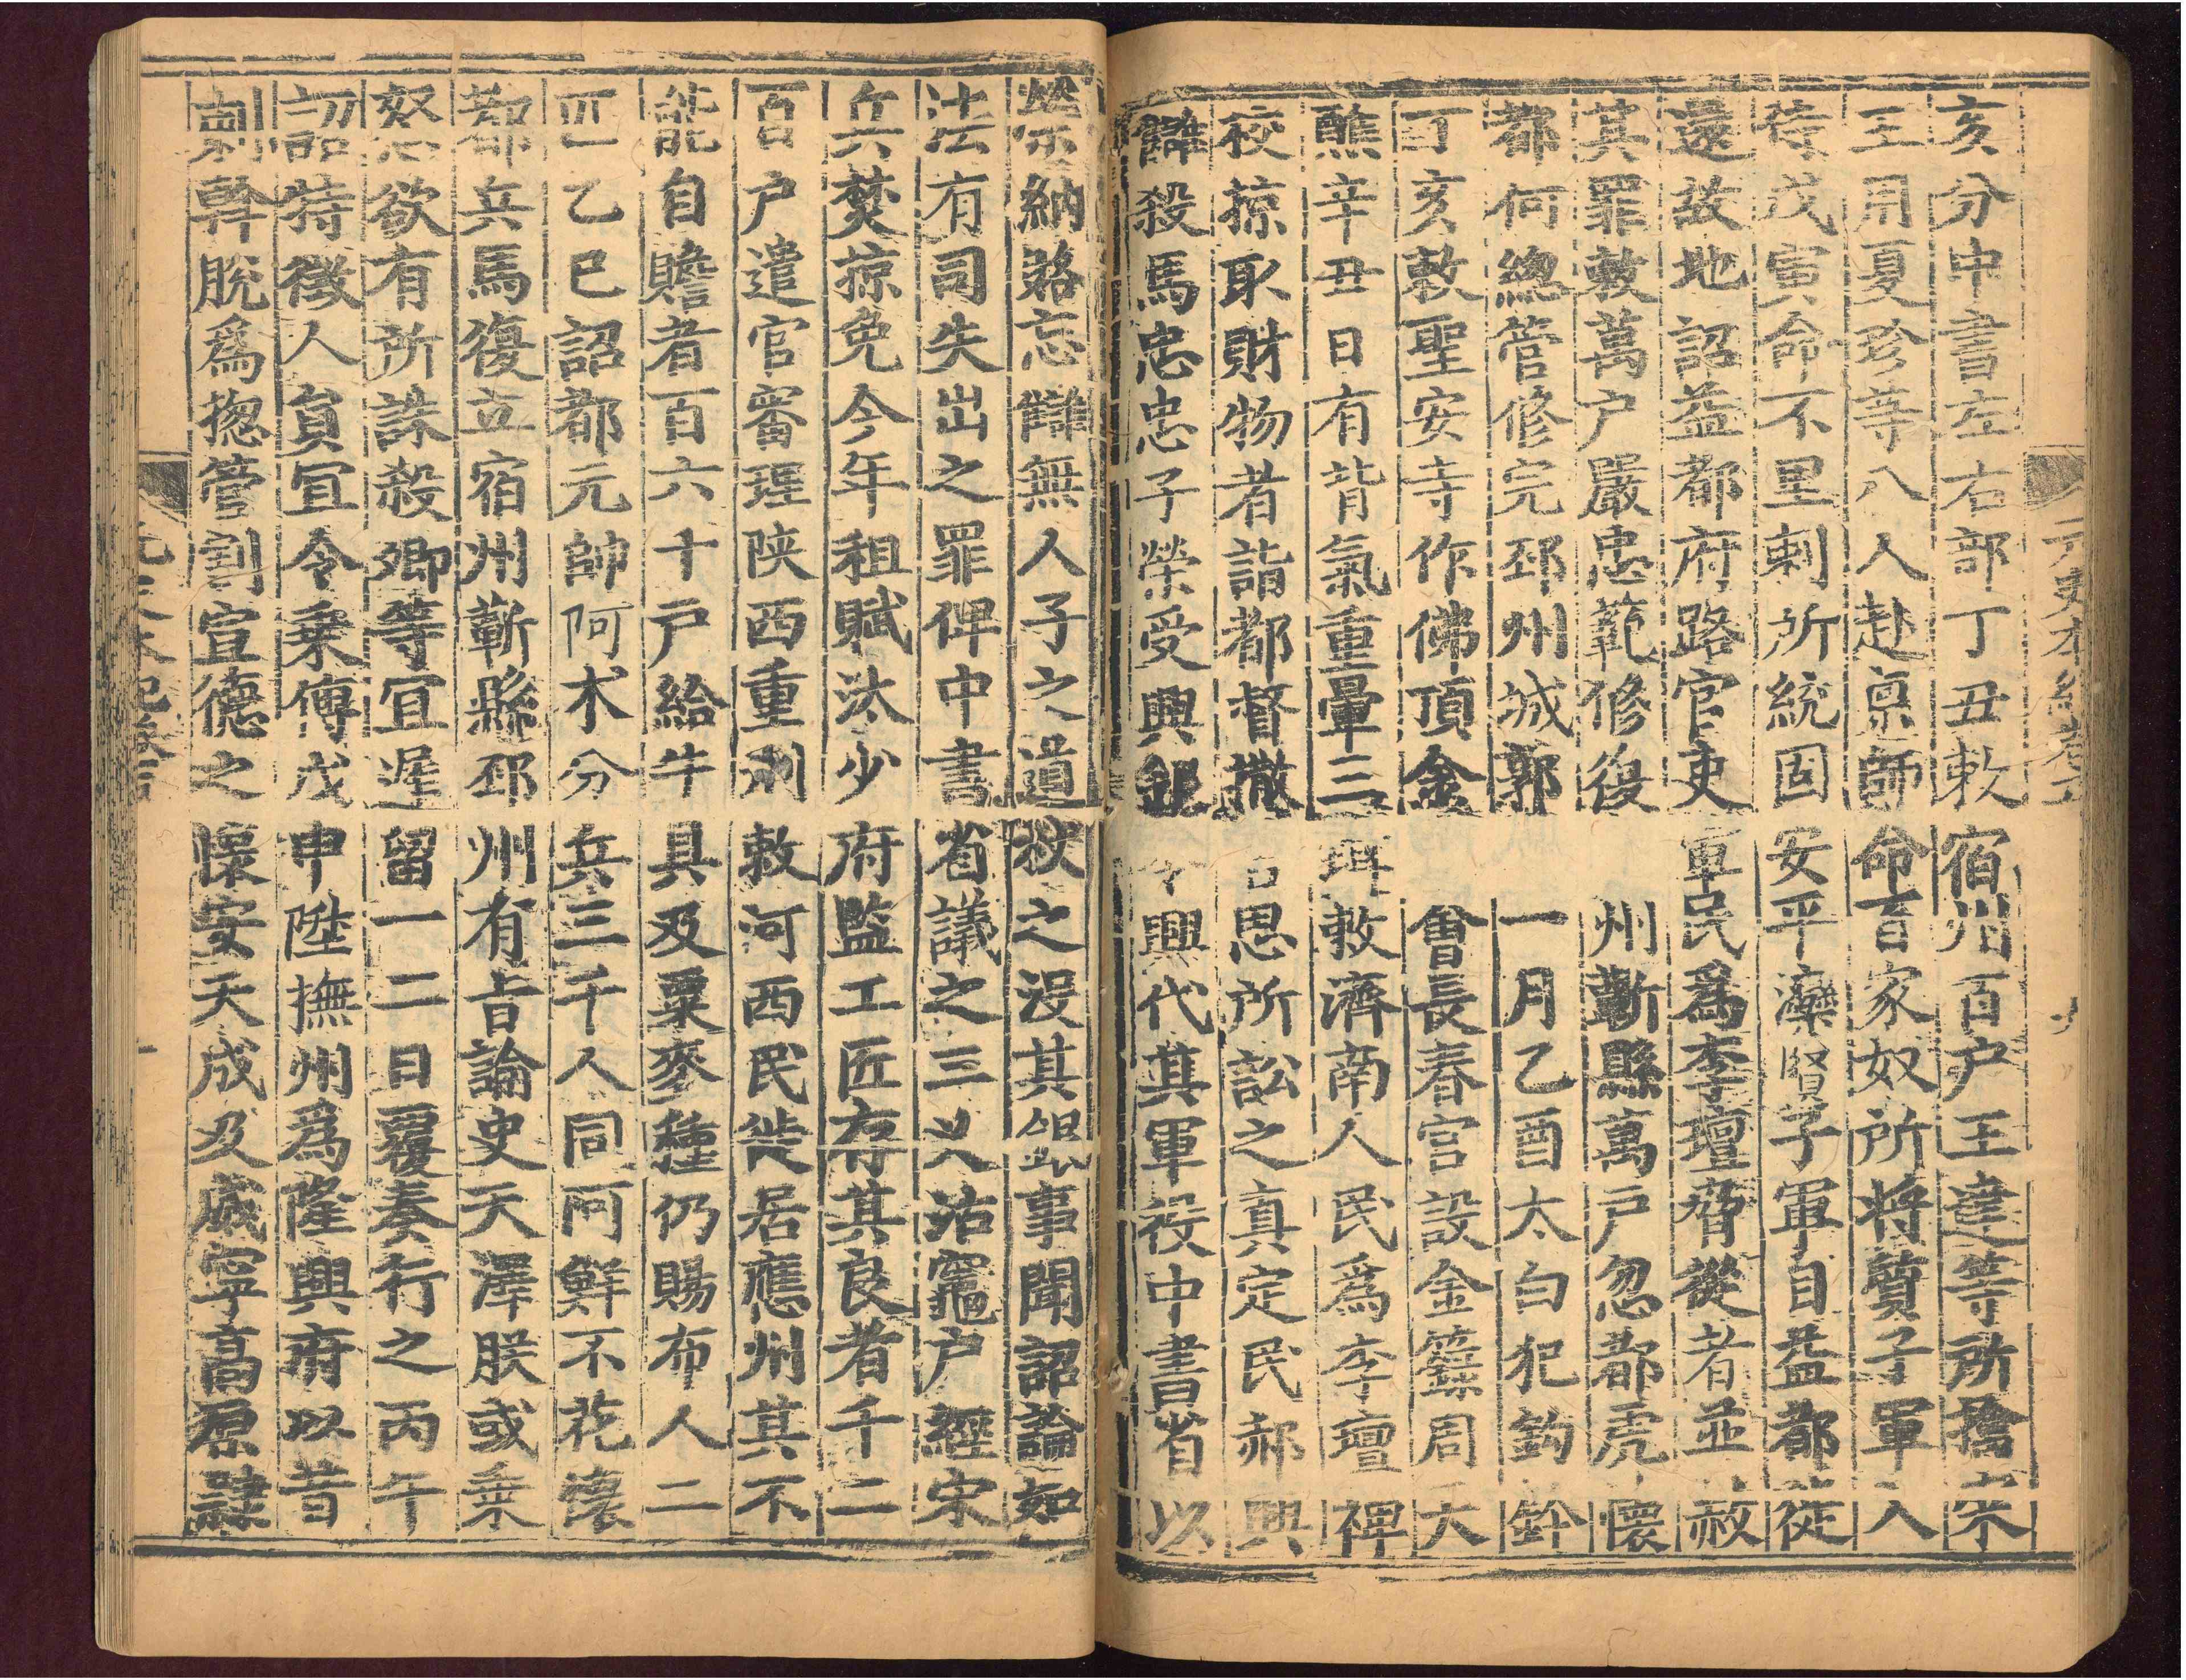 亥分中書左右部丁丑敕宿州百户王達等所擒宋
王用夏珍等八人赴京師命百家奴所將質子軍入
侍戊寅命不里剌所統固安平灤質子軍自益都徙
還故地詔益都府路官吏軍民爲李璮脅從者並赦
其罪敕萬户嚴忠範修復州蘄縣萬户忽都虎懷
都何總管修完邳州城郭一月乙酉太白犯鈎鈐
丁亥敕聖安寺作佛頂金會長春宮設金籙周天
醮辛丑日有背氣重暈三珥敕濟南人民爲李璮裨
校掠取財物者詣都督撒吉思所訟之真定民郝興
讎殺馬忠忠子榮受興銀令興代其軍役中書省以
榮納賂忘讎無人子之道杖之没其銀事聞詔論如
法有司失出之罪俾中書省議之三乂沽竈户經宋
兵焚掠免今年租賦汰少府監工匠存其良者千二
百户遣官審理陝西重刑敕河西民徙居應州其不
能自贍者百六十户給牛具及粟麥種仍賜布人二
匹乙巳詔都元帥阿术分兵三千人同阿鮮不花懷
都兵馬復立宿州蘄縣邳州有旨諭史天澤朕或乗
怒欲有所誅殺卿等宜遲留一二日覆奏行之丙午
詔特徵人員宜令乗傳戊申陞撫州爲隆興府以昔
剌斡脱爲揔管割宣德之懷安天成及威寧高原隸